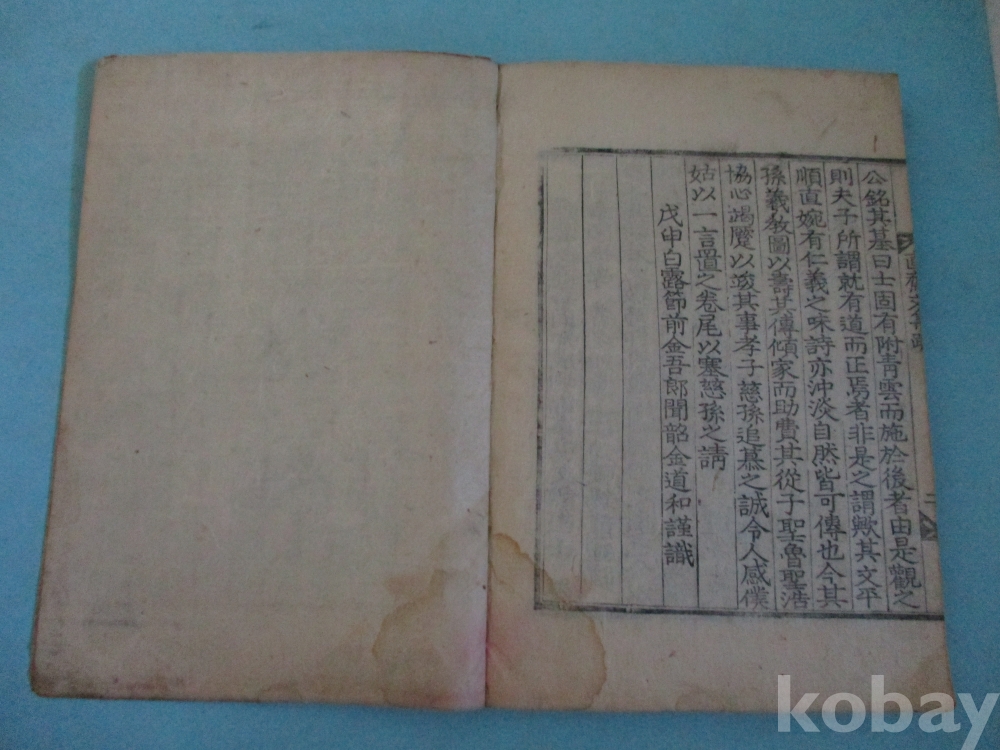 公銘其墓曰士固有附青雲而施於後者由是觀之
則夫子所謂就有道而正焉者非是之謂歟其文平
順直婉有仁義之味詩亦沖淡自然皆可傳也今其
孫羲敎圖以壽其傳傾家而助費其從子聖魯聖浩
協心竭蹙以竣其事孝子慈孫追慕之誠令人感僕
姑以一言置之卷尾以塞慈孫之請
戊申白露節前金吾郎聞韶金道和謹識
二
kobay